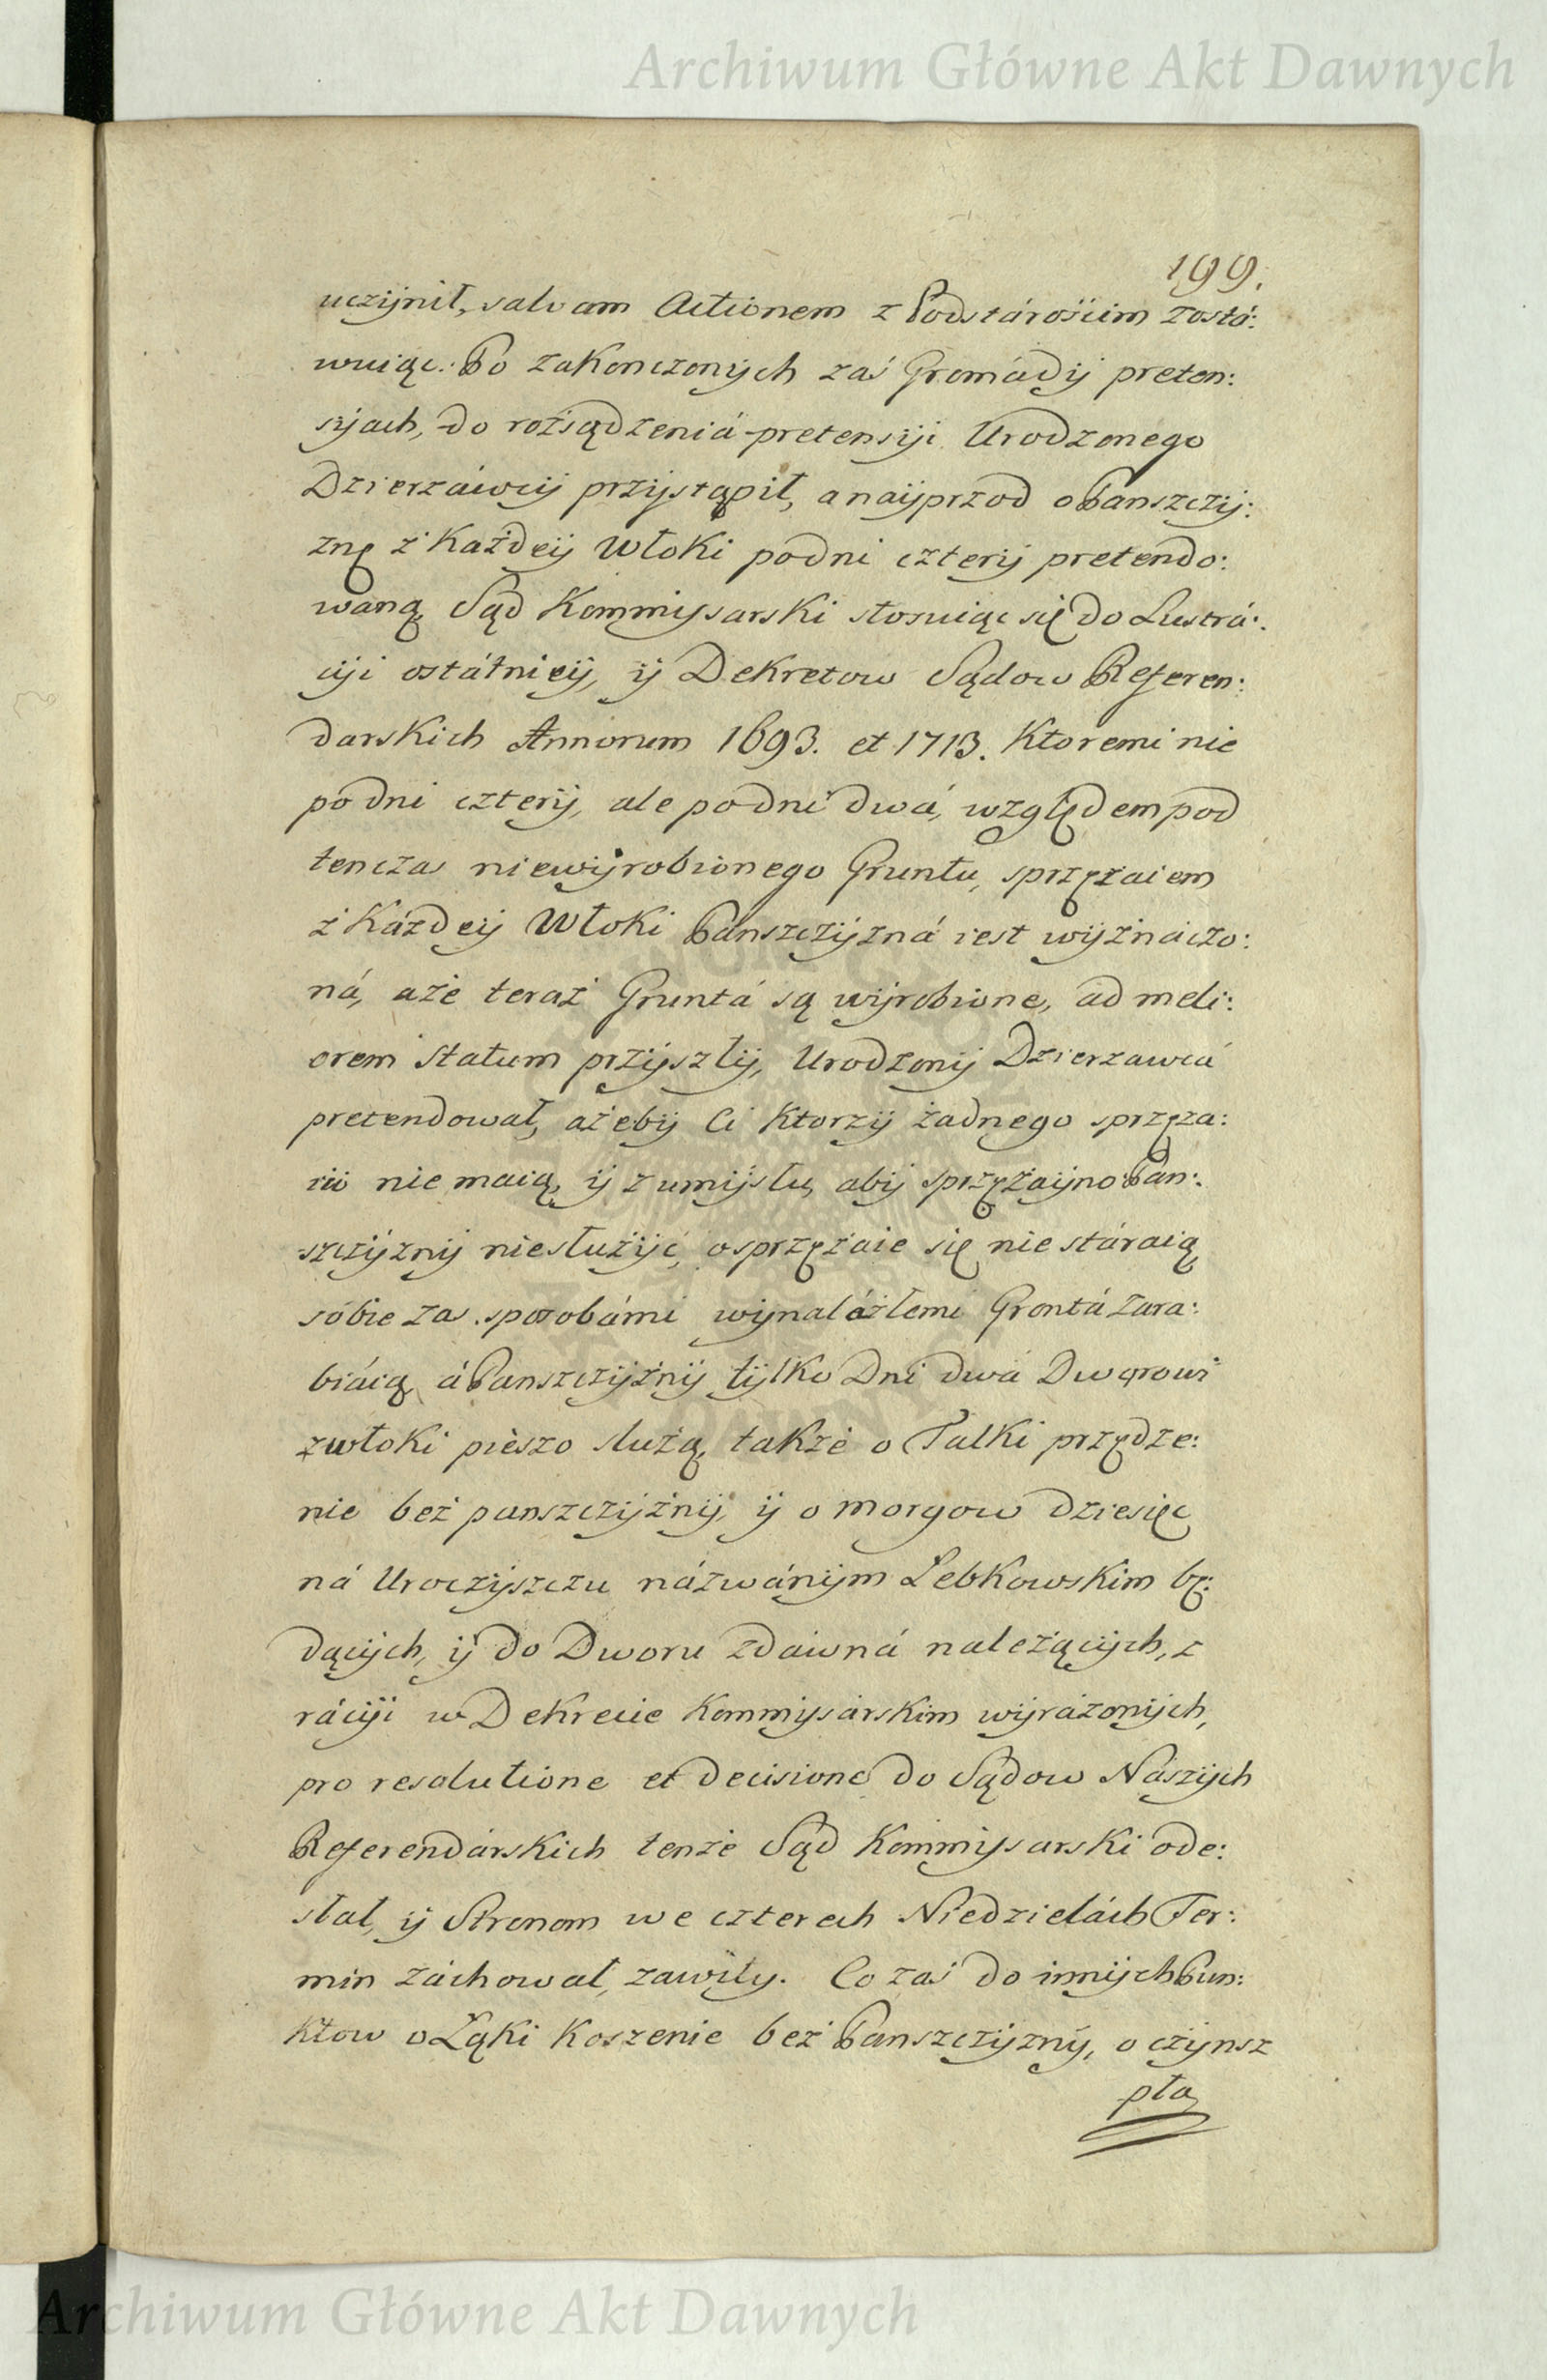 Archiwum Główne Akt Dawnych
199.
uczijnił, salvam Actionem z Podstárośćim zostá:
wuiąc. Po zakonczonijch zaś Gromádij preten:
sijach, do rożsądzeniá pretensiji Urodzonego
Dzierzáwcij prziystąpił, a naijprzod o Panszczij:
znę z' Każdeij Włoki po dni czterij pretendo:
waną Sąd Kommijsarski stosuiąc się do Lustrá:
ciji ostátnieij, ij Dekretow Sądow Referen:
darskich Annorum 1693. et 1713. Ktoremi nie
po dni czterij, ale po dni dwá, względem pod
tenczas niewijrobionego Gruntu, sprzężaiem
z' Kázdeij Włoki Pánszczijzná iest wijżnaczo:
ná, aże teraż Gruntá są wijrobione, ad meli:
orem Statum prziyszłij, Urodzonij Dzierzawcá
pretendował, ażebij Ci Ktorzij żadnego sprzęza:
iu nie maią, ij z umijsłu, abij sprzężaijno Pan:
szczijznij niesłużijć, o sprzężaie się nie stáraią
sobie za sposobámi wijnaláżłemi Grontá zara:
biáią, á Panszczijżnij tijlko Dni dwa Dworowi
z włoki pieszo służą, także o Talki przędze:
nie beż panszczijżnij, ij o morgow dziesięć
ná Uroczijszczu názwánijm Lebkowskim bę:
dącijch, ij do Dworu zdawná należącijch, z
ráciji w Dekrecie Kommijsárskim wijrażonijch,
pro resolutione et decisione do Sądow Nászijch
Referendárskich tenże Sąd Kommijsarski ode:
słał, ij Stronom we czterech Niedzieláćh Ter:
min záchował, zawiły. Co zaś do innijch Pun:
ktow o Łąki Koszenie beż Panszczijznij, o czijnsz
pła,
Archiwum Główne Akt Dawnych